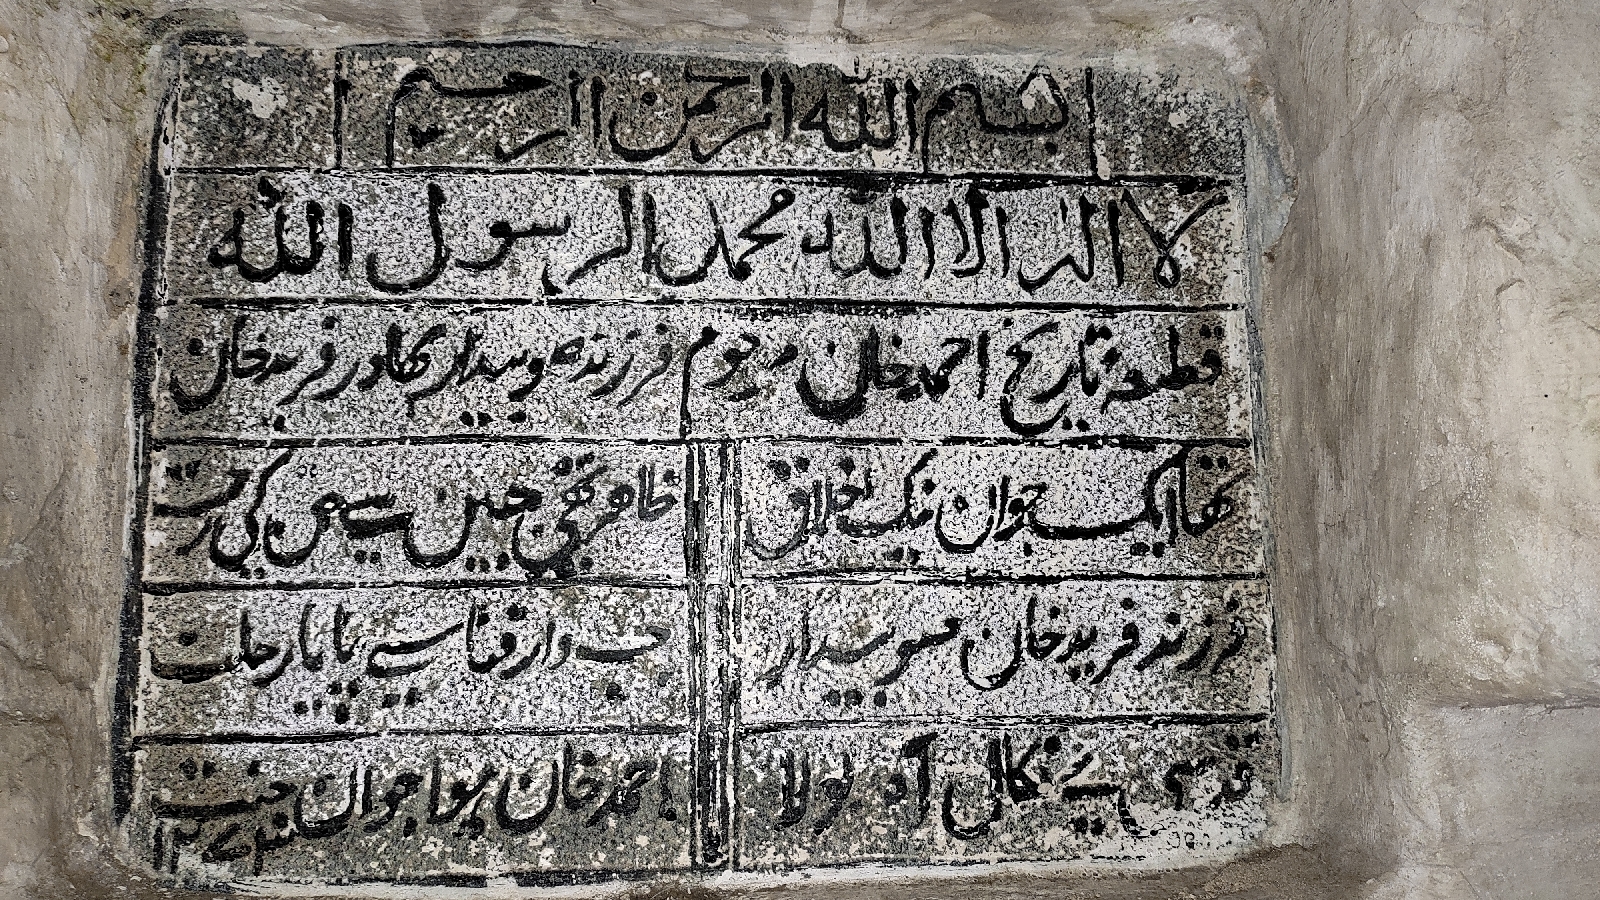 بسم الله الرحمن الرحیم
لا اله الا الله محمد الرسول الله
قطعه تاریخ احمد خان مرحوم فرزنده وبیدار بهادر فرید خان
تها ایک جوان نیک اخلاق
ظاهر تهی جبین سے هن کی
فرزند فرید خان
دار فنا سے پایا رحلت
قدسی نے نکال آه بولا
احمد خان ہوا جوان جنت
۱۲۷۳